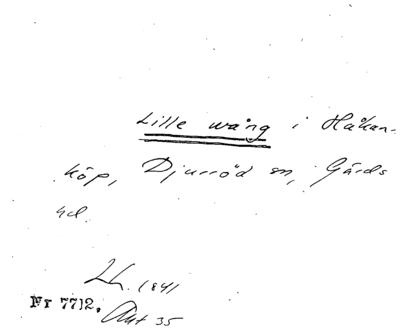 Lille wång i Håkan-
köp, Djurröd sn, Gärds
hd.
Lh. 1841
Nr 7712. Akt 35